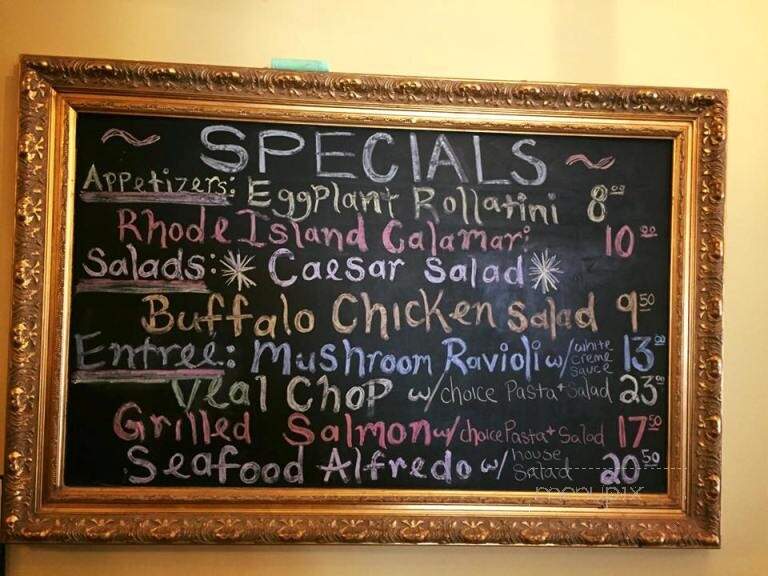 ~ SPECIALS ~
Appetizers: Eggplant Rollatini 8.00
Rhode Island Calamari 10.00
Salads: * Caesar Salad *
Buffalo Chicken Salad 9.50
Entree: Mushroom Ravioli w/ white creme sauce 13.00
Veal Chop w/ choice Pasta + Salad 23.00
Grilled Salmon w/ choice Pasta + Salad 17.50
Seafood Alfredo w/ house Salad 20.50
menupix